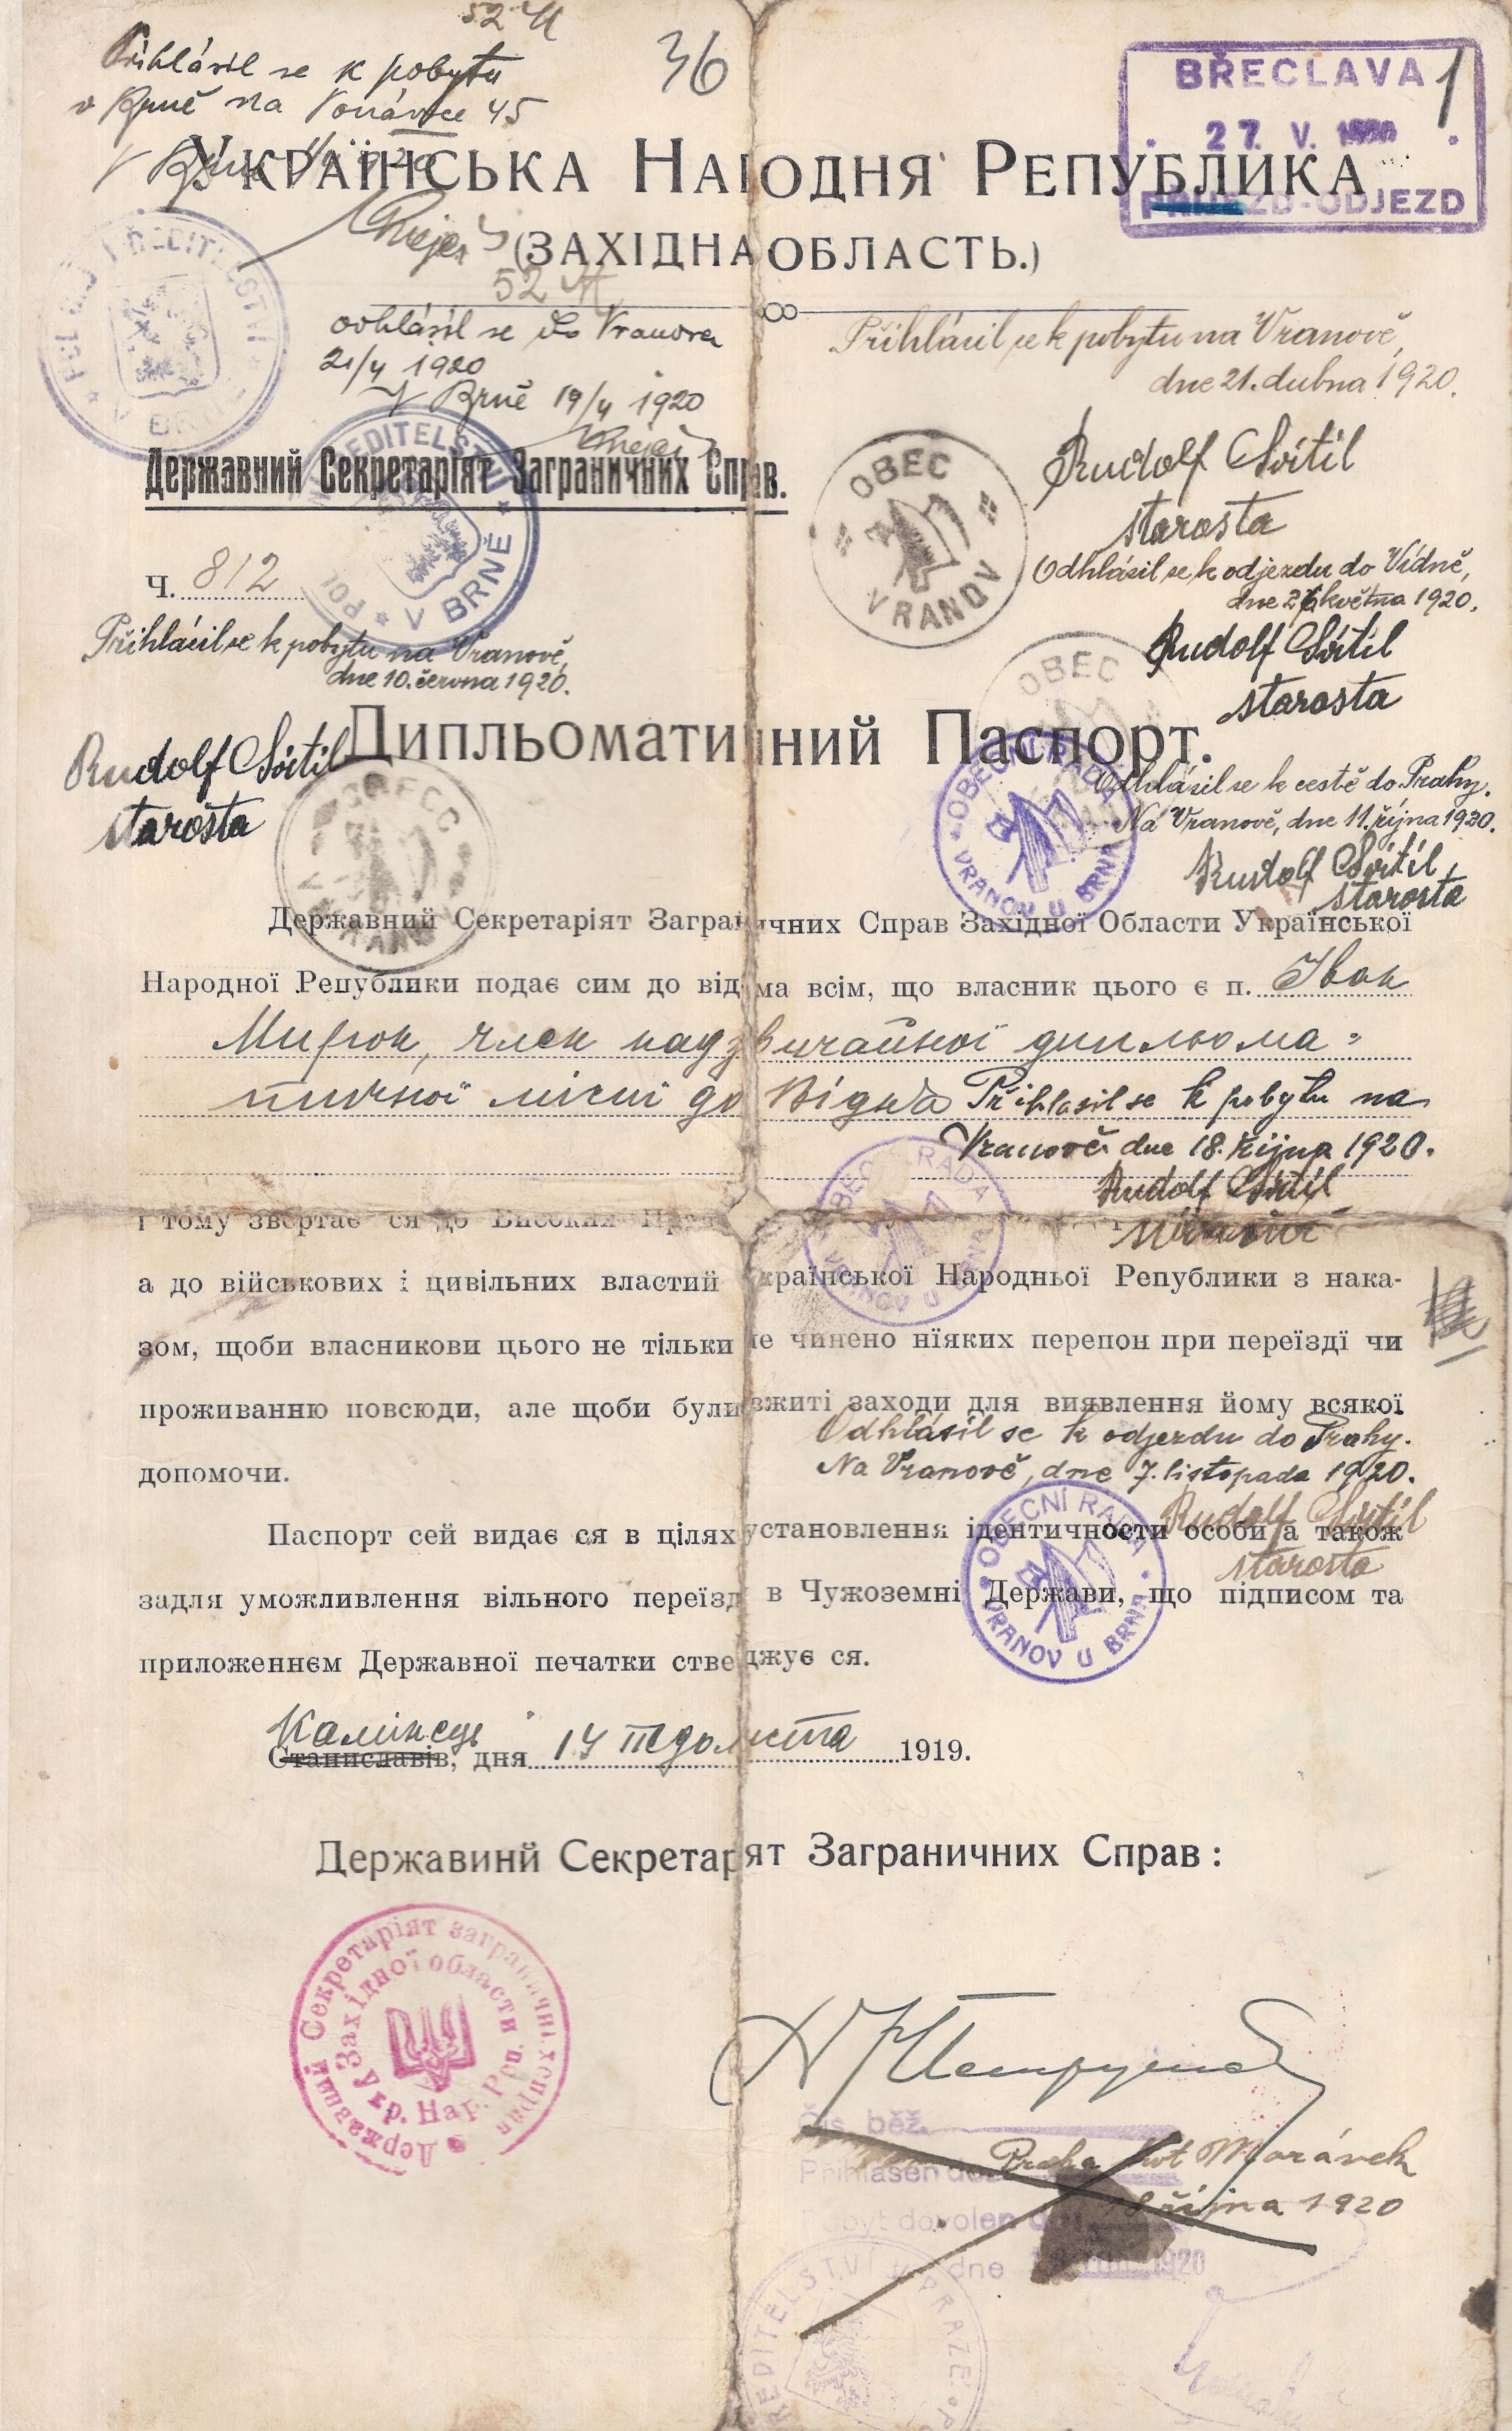 52 M
Přihlásil se k pobytu
v Brně na Ponávce 45
V Brně
36
BŘECLAVA
27. V. 1920
PŘÍJEZD-ODJEZD
1
УКРАЇНСЬКА НАРОДНЯ РЕПУБЛИКА
(ЗАХІДНА ОБЛАСТЬ.)
52 M
odhlásil se do Vranova
21/4 1920
V Brně 19/4 1920
Přihlásil se k pobytu na Vranově,
dne 21. dubna 1920.
Rudolf Svitil
starosta
POL. ŘEDITELSTVÍ V BRNĚ
POL. ŘEDITELSTVÍ V BRNĚ
OBEC VRANOV
Державний Секретаріят Заграничних Справ.
Ч. 812
Odhlásil se k odjezdu do Vídně,
dne 26 května 1920.
Rudolf Svitil
starosta
OBEC
Přihlásil se k pobytu na Vranově,
dne 10. června 1920.
Rudolf Svitil
starosta
OBEC VRANOV
Дипльоматичний Паспорт.
OBECNÍ RADA VRANOV U BRNA
Odhlásil se k cestě do Prahy.
Na Vranově, dne 11. října 1920.
Rudolf Svitil,
starosta
Державний Секретаріят Заграничних Справ Західної Области Української
Народної Републики подає сим до відома всім, що власник цього є п. Іван
Мирон, член надзвичайної дипльома=
тичної місиї до Відня
Přihlásil se k pobytu na
Vranově dne 18. října 1920.
Rudolf Svitil
OBEC. RADA VRANOV U BRNA
і тому звертає ся до Високих
а до військових і цивільних властий Української Народньої Републики з нака-
зом, щоби власникови цього не тільки не чинено ніяких перепон при переїзді чи
проживанню повсюди, але щоби були вжиті заходи для виявлення йому всякої
допомочи.
Odhlásil se k odjezdu do Prahy.
Na Vranově, dne 7. listopada 1920.
Rudolf Svitil
starosta
OBECNÍ RADA VRANOV U BRNA
Паспорт сей видає ся в цілях установлення ідентичности особи а також
задля уможливлення вільного переїзду в Чужоземні Держави, що підписом та
приложеннєм Державної печатки стверджує ся.
Камінець
Станиславів, дня 14 падолиста 1919.
Державинй Секретарят Заграничних Справ:
Державний Секретаріят заграничних справ
Західної области Укр. Нар. Реп.
Čís. běž.
Přihlášen do
Pobyt dovolen do
dne 1920
Praha Hot Morávek
18 října 1920
ŘEDITELSTVÍ V PRAZE